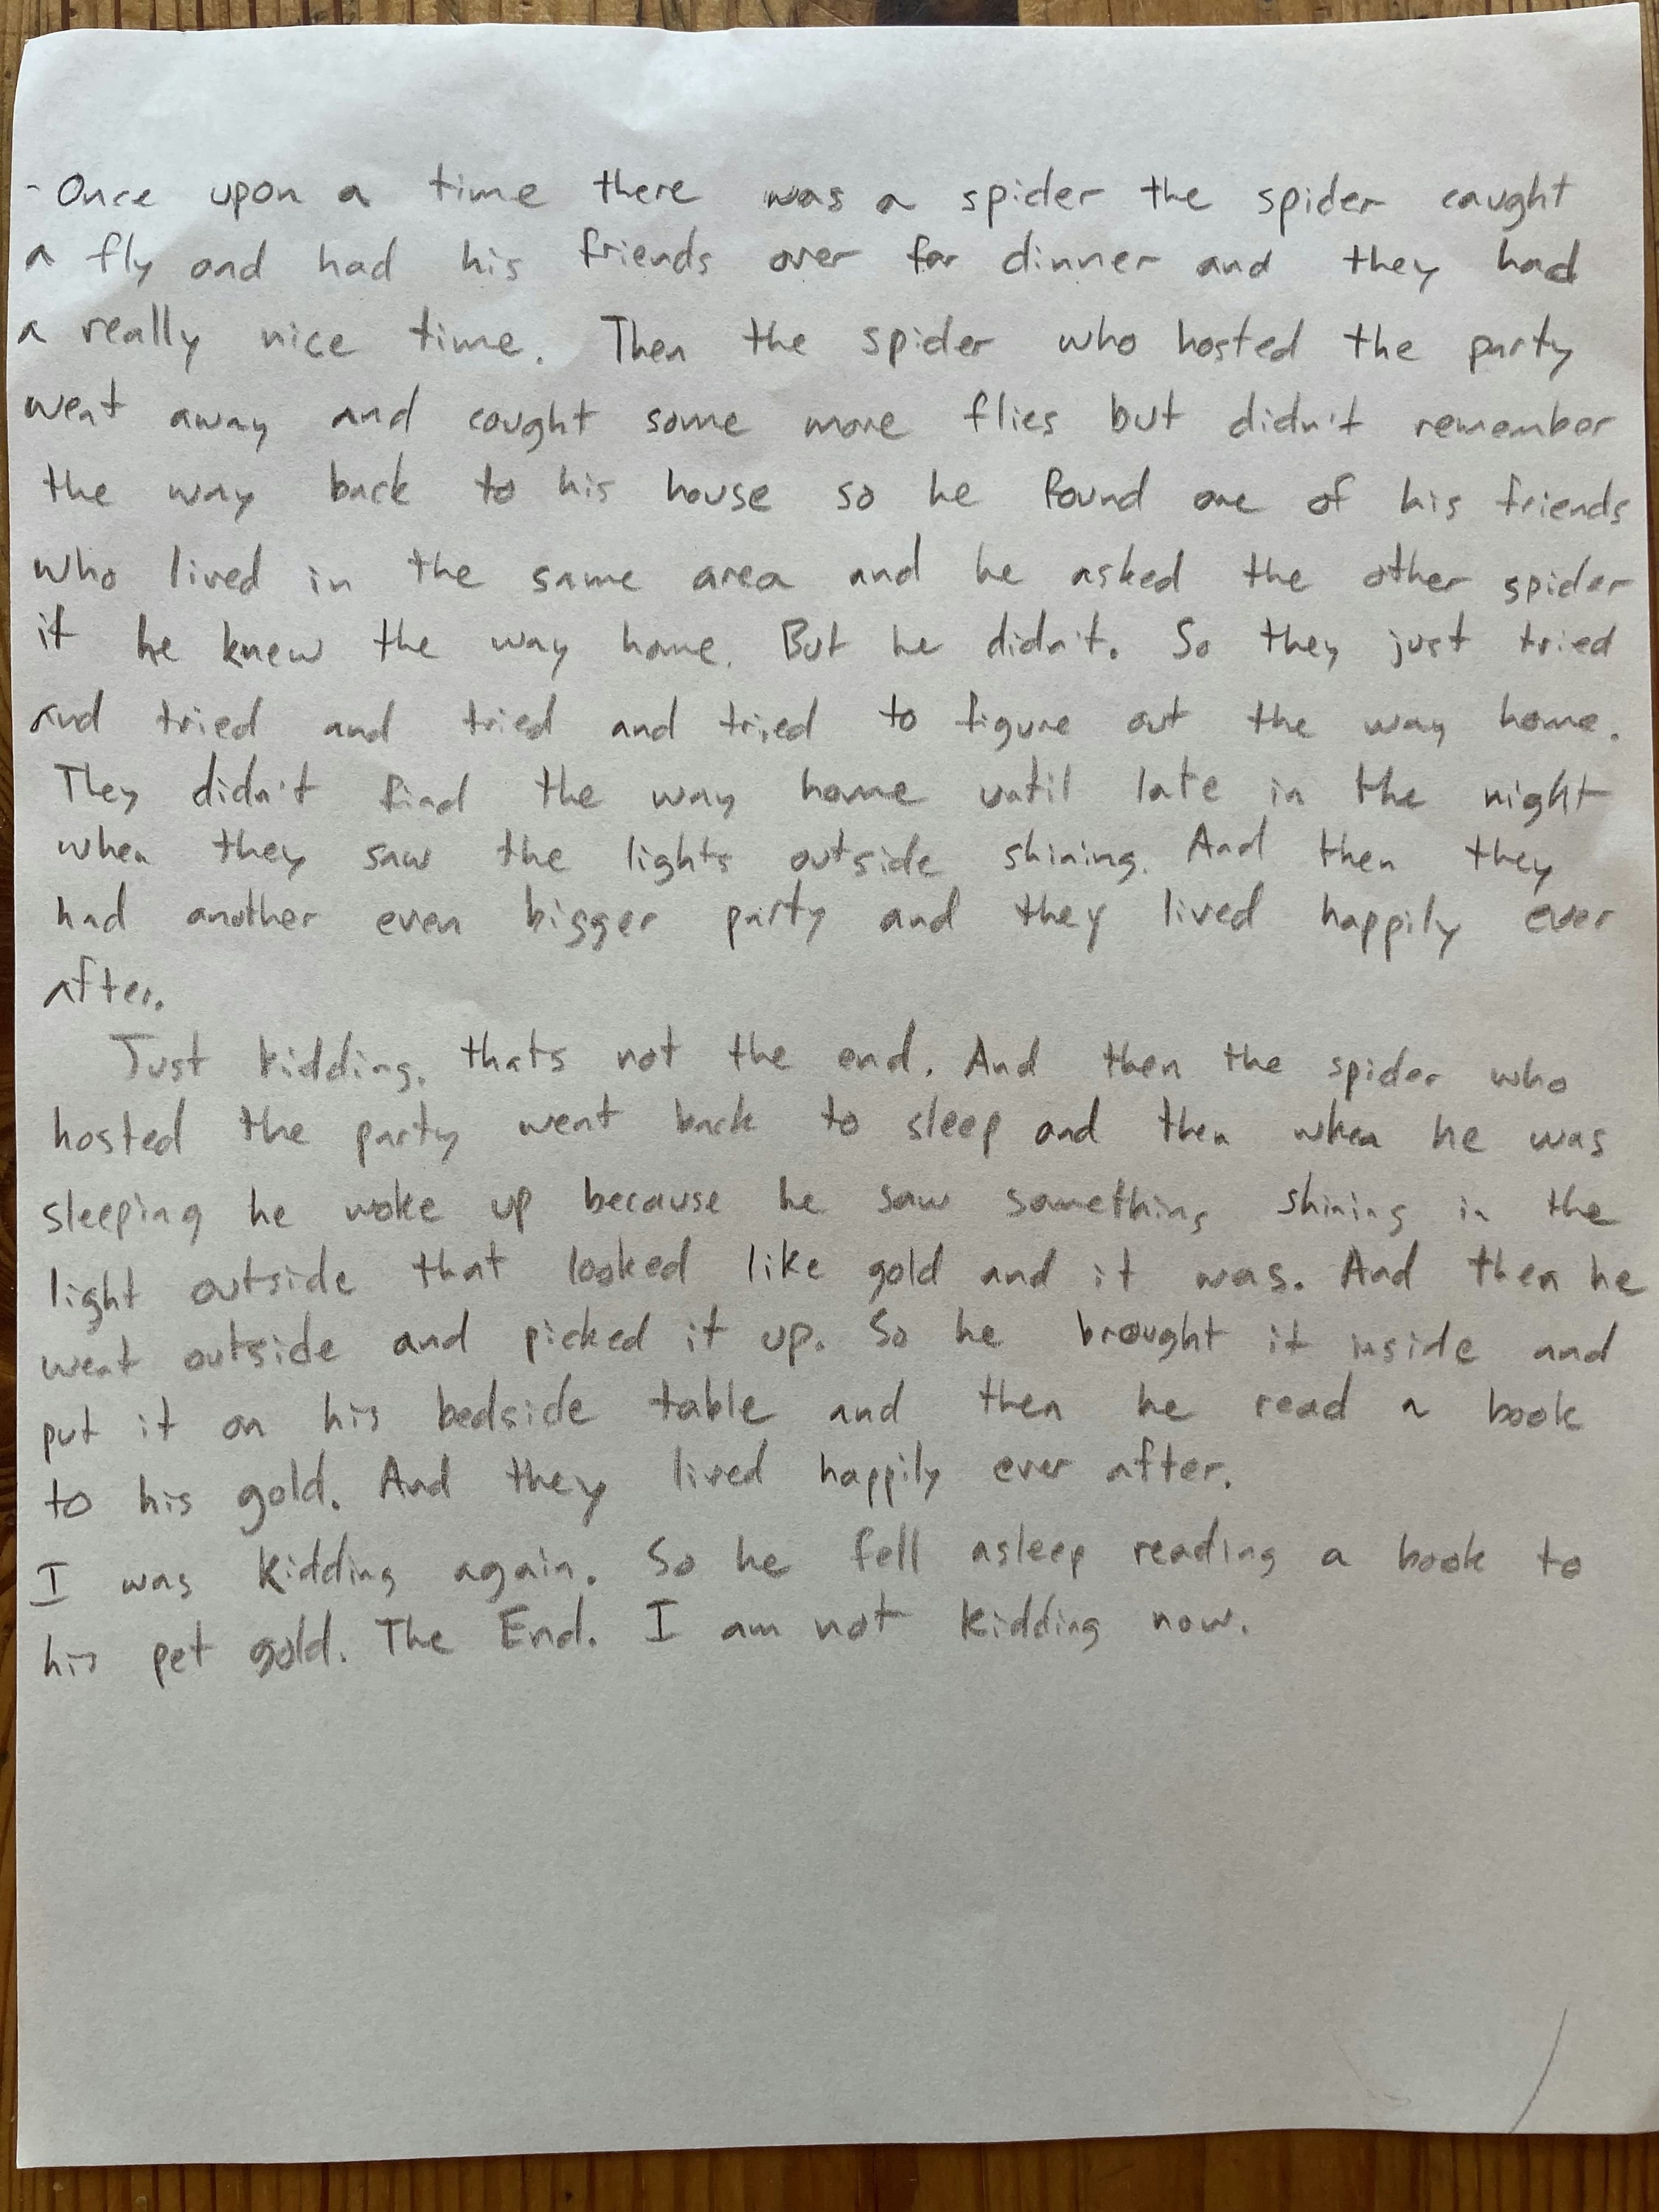 - Once upon a time there was a spider the spider caught
a fly and had his friends over for dinner and they had
a really nice time. Then the spider who hosted the party
went away and caught some more flies but didn't remember
the way back to his house so he found one of his friends
who lived in the same area and he asked the other spider
if he knew the way home. But he didn't. So they just tried
and tried and tried and tried to figure out the way home.
They didn't find the way home until late in the night
when they saw the lights outside shining. And then they
had another even bigger party and they lived happily ever
after.
Just kidding. thats not the end. And then the spider who
hosted the party went back to sleep and then when he was
sleeping he woke up because he saw something shining in the
light outside that looked like gold and it was. And then he
went outside and picked it up. So he brought it inside and
put it on his bedside table and then he read a book
to his gold. And they lived happily ever after.
I was kidding again. So he fell asleep reading a book to
his pet gold. The End. I am not kidding now.